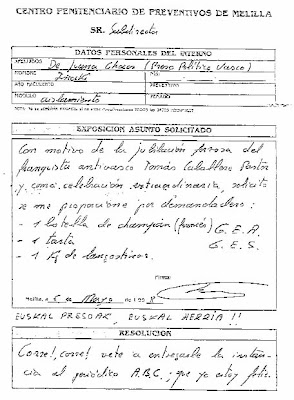 CENTRO PENITENCIARIO DE PREVENTIVOS DE MELILLA
SR. Subdirector
DATOS PERSONALES DEL INTERNO
APELLIDOS De Juana Chaos (Preso Político Vasco)
NOMBRE Iñaki
PREVENTIVO
PENADO
MODULO aislamiento
EXPOSICION ASUNTO SOLICITADO
Con motivo de la jubilación forzosa del
franquista antivasco Tomás Caballero Pastor
y como celebración extraordinaria, solicito
se me proporcione por demandadero:
- 1 botella de champán (francés) G.E.A.
- 1 tarta G.E.S.
- 1 Kg de langostinos.
FIRMA:
Melilla, a 6 de Mayo de 199
EUSKAL PRESOAK, EUSKAL HERRIA!!
RESOLUCION
Corre!, corre! vete a entregarle la instan-
cia al periódico A.B.C., que ya estoy feliz.